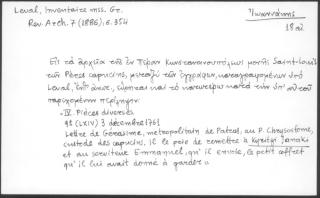 Leval, Inventaire mss. Gr.
Rev. Arch. 7 (1886), σ. 354
Ἰωαννάκης
18 αἰ.
Εἰς τὰ ἀρχεῖα τῆς ἐν Πέραν Κωνσταντινουπόλεως μονῆς Saint-Louis
τῶν Pères capucins, μεταξὺ τῶν ἐγγράφων, καταγραφομένων ὑπὸ
Leval, ἔνθ' ἀνωτ., εὕρηται καὶ τὸ κατωτέρω κατὰ τὴν ὑπ' αὐτοῦ
παρεχομένην περίληψιν:
« IV. Pièces diverses
92 (LXIV) 3 décembre 1761
Lettre de Gérasime, métropolitain de Patras, au P. Chrysostome,
custode des capucins. Il le prie de remettre à Kyritzi Janaki
et au serviteur Emmanuel, qu'il envoie, le petit coffret
qu'il lui avait donné à garder »